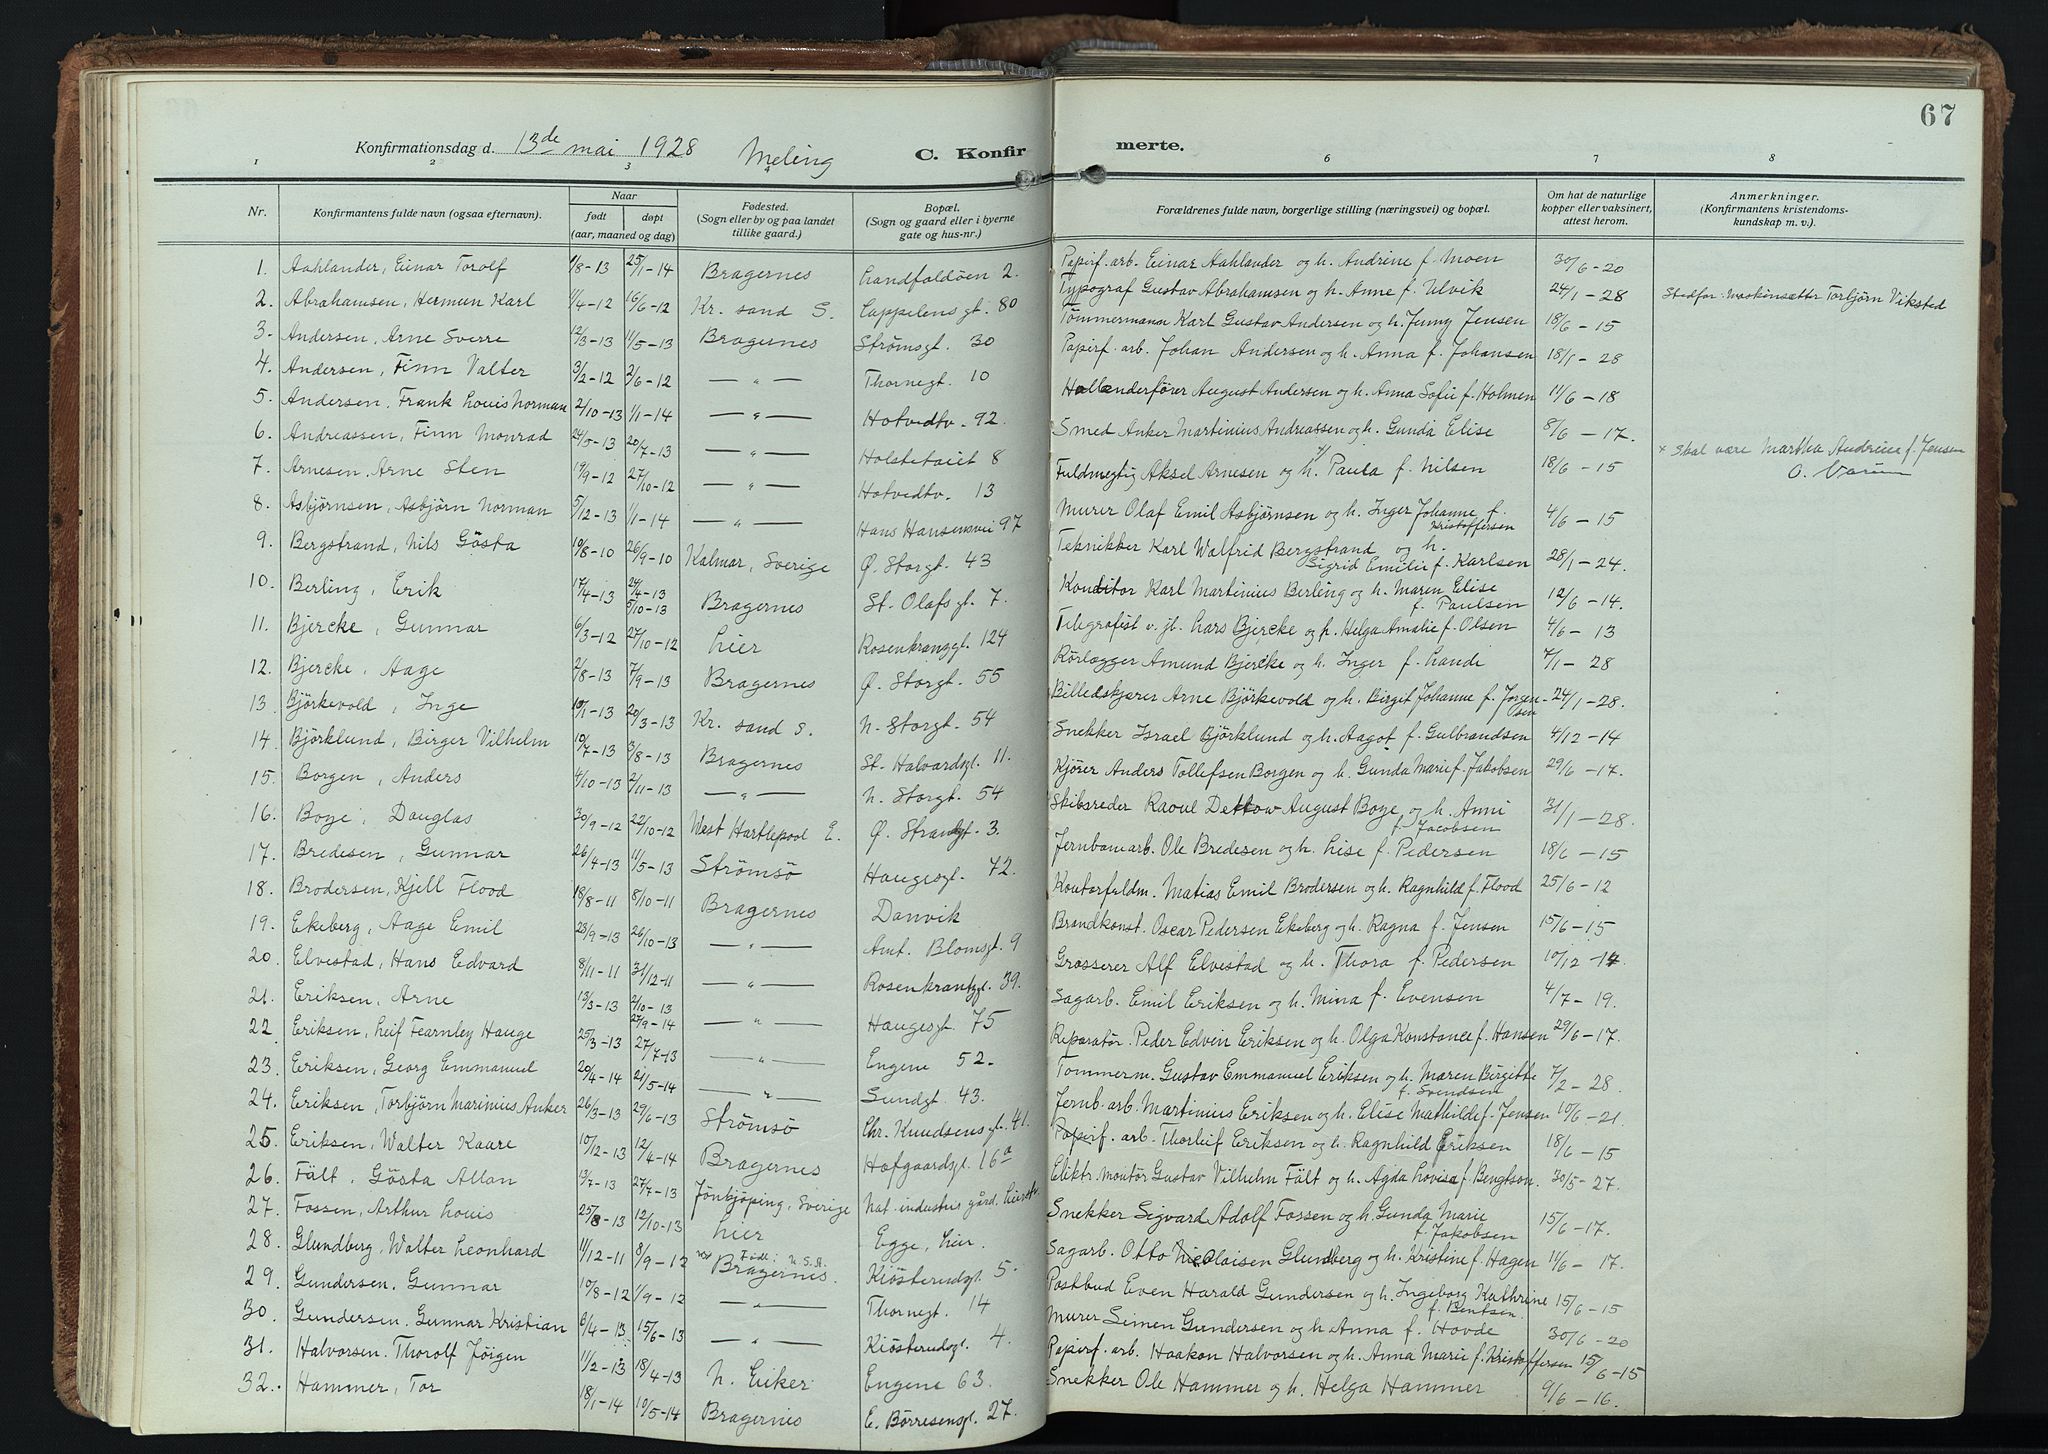 67
Konfirmationsdag d. 13de mai 1928 Meling C. Konfirmerte.
1 2 3 4 6 7 8
Nr. Konfirmantens fulde navn (ogsaa efternavn). Naar født døpt (aar, maaned og dag) Fødested. (Sogn eller by og paa landet tillike gaard.) Bopæl. (Sogn og gaard eller i byerne gate og hus-nr.) Forældrenes fulde navn, borgerlige stilling (næringsvei) og bopæl. Om hat de naturlige kopper eller vaksinert, attest herom. Anmerkninger. (Konfirmantens kristendomskundskap m. v.).
1. Aahlander, Einar Torolf 1/8-13 25/1-14 Bragernes Landfaldöen 2. Papirf. arb. Einar Aahlander og h. Andrine f. Moen 30/6-20
2. Abrahamsen, Herman Karl 1/4-12 16/6-12 Kr. sand S. Cappelensgt. 80 Typograf Gustav Abrahamsen og h. Anne f. Ulvik 24/1-28 Stedfar: Maskinsætter Torbjörn Viksted
3. Andersen, Arne Sverre 12/3-13 11/5-13 Bragernes Strømsgt. 30 Tömmermann Karl Gustav Andersen og h. Jenny Jensen 18/6-15
4. Andersen, Finn Valter 3/2-12 2/6-12 — " — Thornegt. 10 Papirf. arb. Johan Andersen og h. Anna f. Johansen 18/1-28
5. Andersen, Frank Louis Norman 2/10-13 1/1-14 — " — Hotvedtv. 92. Hollenderfører August Andersen og h. Anna Sofie f. Holmen 11/6-18
6. Andreassen, Finn Monrad 24/5-13 20/7-13 — " — Holstetaiet 8 Smed Anker Martinius Andreassen og h. Gunda Elise 8/6-17.
7. Arnesen, Arne Sten 19/9-12 27/10-12 — " — Hotvedtv. 13 Fuldmegtig Aksel Arnesen og h. Paula f. Nilsen 18/6-15 x Skal være Martha Andrine f. Jensen
8. Asbjørnsen, Asbjørn Norman 5/12-13 1/1-14 — " — Hans Hansensvei 97 Murer Olaf Emil Asbjørnsen og h. Inger Johanne f. Kristoffersen 4/6-15
9. Bergstrand, Nils Gösta 10/8-10 26/9-10 Kalmar, Sverige Ø. Storgt. 43 Teknikker Karl Walfrid Bergstrand og h. Sigrid Emilie f. Karlsen 28/1-24.
10. Berling, Erik 17/4-13 5/10-13 Bragernes St. Olafsgt. 7. Konditor Karl Martinius Berling og h. Maren Elise f. Paulsen 12/6-14.
11. Bjercke, Gunnar 6/3-12 27/10-12 Lier Rosenkranzgt. 124 Telegrafist v. jb. Lars Bjercke og h. Helga Amalie f. Olsen 4/6-13
12. Bjercke, Aage 2/8-13 7/9-13 Bragernes Ø. Storgt. 55 Rörlægger Amund Bjercke og h. Inger f. Lande 7/1-28
13. Björkevold, Inge 10/1-13 20/3-13 Kr. sand S. N. Storgt. 54 Billedskjærer Arne Björkevold og h. Birgit Johanne f. Jorgensen 24/1-28.
14. Björklund, Birger Vilhelm 10/7-13 3/8-13 Bragernes St. Halvardsgt. 11. Snekker Israel Björklund og h. Aagot f. Gulbrandsen 4/12-14
15. Borgen, Anders 4/10-13 2/11-13 — " — N. Storgt. 54 Kjører Anders Tollefsen Borgen og h. Gunda Marie f. Jakobsen 29/6-17.
16. Boye, Douglas 30/9-12 22/10-12 West Hartlepool E. Ø. Strandgt. 3. Skibsreder Raoul Dettow August Boye og h. Anni f. Jacobsen 31/1-28.
17. Bredesen, Gunnar 26/4-13 11/5-13 Strömsö Haugesgt. 72. Jernbanearb. Ole Bredesen og h. Lise f. Pedersen 18/6-15
18. Brodersen, Kjell Flood 18/8-11 8/10-11 Bragernes Danvik Kontorfuldm. Matias Emil Brodersen og h. Ragnhild f. Flood 25/6-12
19. Ekeberg, Aage Emil 23/9-13 26/10-13 — " — Amt. Blomsgt. 9 Brandkonst. Oscar Pedersen Ekeberg og h. Ragna f. Jensen 15/6-15
20. Elvestad, Hans Edvard 8/11-11 31/12-11 — " — Rosenkrantzgt. 39. Grosserer Alf Elvestad og h. Thora f. Pedersen 10/12-14
21. Eriksen, Arne 13/3-13 2/10-13 — " — Haugesgt. 75 Sagarb. Emil Eriksen og h. Mina f. Evensen 4/7-19.
22 Eriksen, Leif Fearnley Hauge 25/3-13 27/7-13 — " — Engene 52. Reparatør. Peder Edvin Eriksen og h. Olga Konstance f. Hansen 29/6-17.
23. Eriksen, Georg Emmanuel 20/4-14 21/5-14 — " — Sundgt. 43. Tömmerm. Gustav Emmanuel Eriksen og h. Maren Birgitte f. Svendsen 7/2-28.
24. Eriksen, Torbjörn Marinius Anker 26/3-13 29/6-13 Strömsö Chr. Knudsensgt. 41. Jernb. arb. Martinius Eriksen og h. Elise Mathilde f. Jensen 10/6-21.
25. Eriksen, Walter Kaare 10/12-13 12/4-14 Bragernes Hofgaardsgt. 16a Papirf. arb. Thorleif Eriksen og h. Ragnhild Eriksen 18/6-15
26. Fält, Gösta Allan 13/7-13 27/7-13 Jönkjöping, Sverige Nat. industris gård, Elektr. montør Gustav Vilhelm Fält og h. Agda Lovisa f. Bengtson. 30/5-27.
27. Fossen, Arthur Louis 25/8-13 12/10-13 Lier Egge, Lier. Snekker Sigvard Adolf Fossen og h. Gunda Marie f. Jakobsen 15/6-17.
28. Glundberg, Walter Leonhard 11/12-11 8/9-12 Bragernes. Född: U.S.A. Kiösterudgt. 5. Sagarb. Otto Nicolaisen Glundberg og h. Kristine f. Hagen 11/6-17.
29. Gundersen, Gunnar 10/8-12 1/9-12 — " — Thornegt. 14 Postbud Even Harald Gundersen og h. Ingeborg Kathrine f. Bentsen 15/6-15
30. Gundersen, Gunnar Kristian 6/4-13 15/6-13 — " — Kiösterudgt. 4. Murer Simen Gundersen og h. Anna f. Hovde 30/6-20
31. Halvorsen, Thorolf Jörgen 11/2-13 18/4-13 N. Eiker Engene 63. Papirf. arb. Haakon Halvorsen og h. Anna Marie f. Kristoffersen 15/6-15
32. Hammer, Tor 18/1-14 10/5-14 Bragernes E. Börresensgt. 27. Snekker Ole Hammer og h. Helga Hammer 9/6-16.